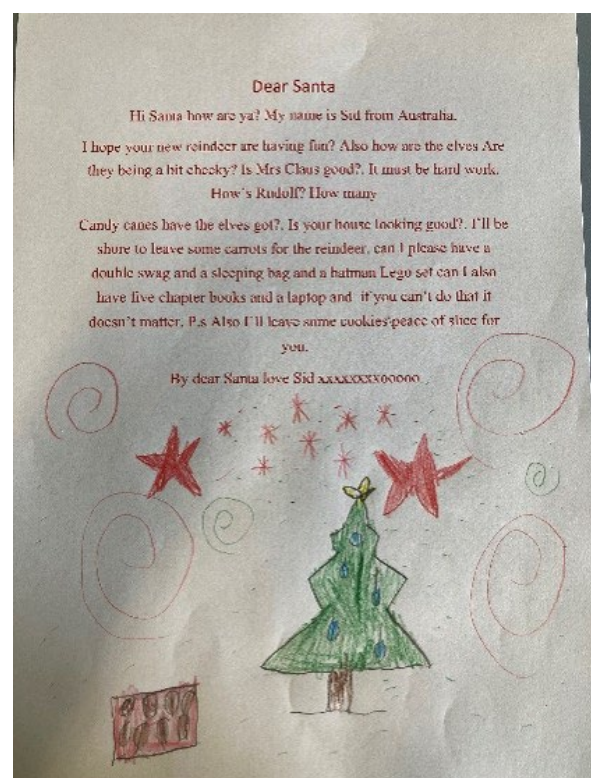 Dear Santa
Hi Santa how are ya? My name is Sid from Australia.
I hope your new reindeer are having fun? Also how are the elves Are
they being a bit cheeky? Is Mrs Claus good?. It must be hard work.
How's Rudolf? How many
Candy canes have the elves got?. Is your house looking good?. I'll be
shore to leave some carrots for the reindeer, can I please have a
double swag and a sleeping bag and a batman Lego set can I also
have five chapter books and a laptop and if you can't do that it
doesn't matter. P.s Also I'll leave some cookies peace of slice for
you.
By dear Santa love Sid xxxxxxxxooooo